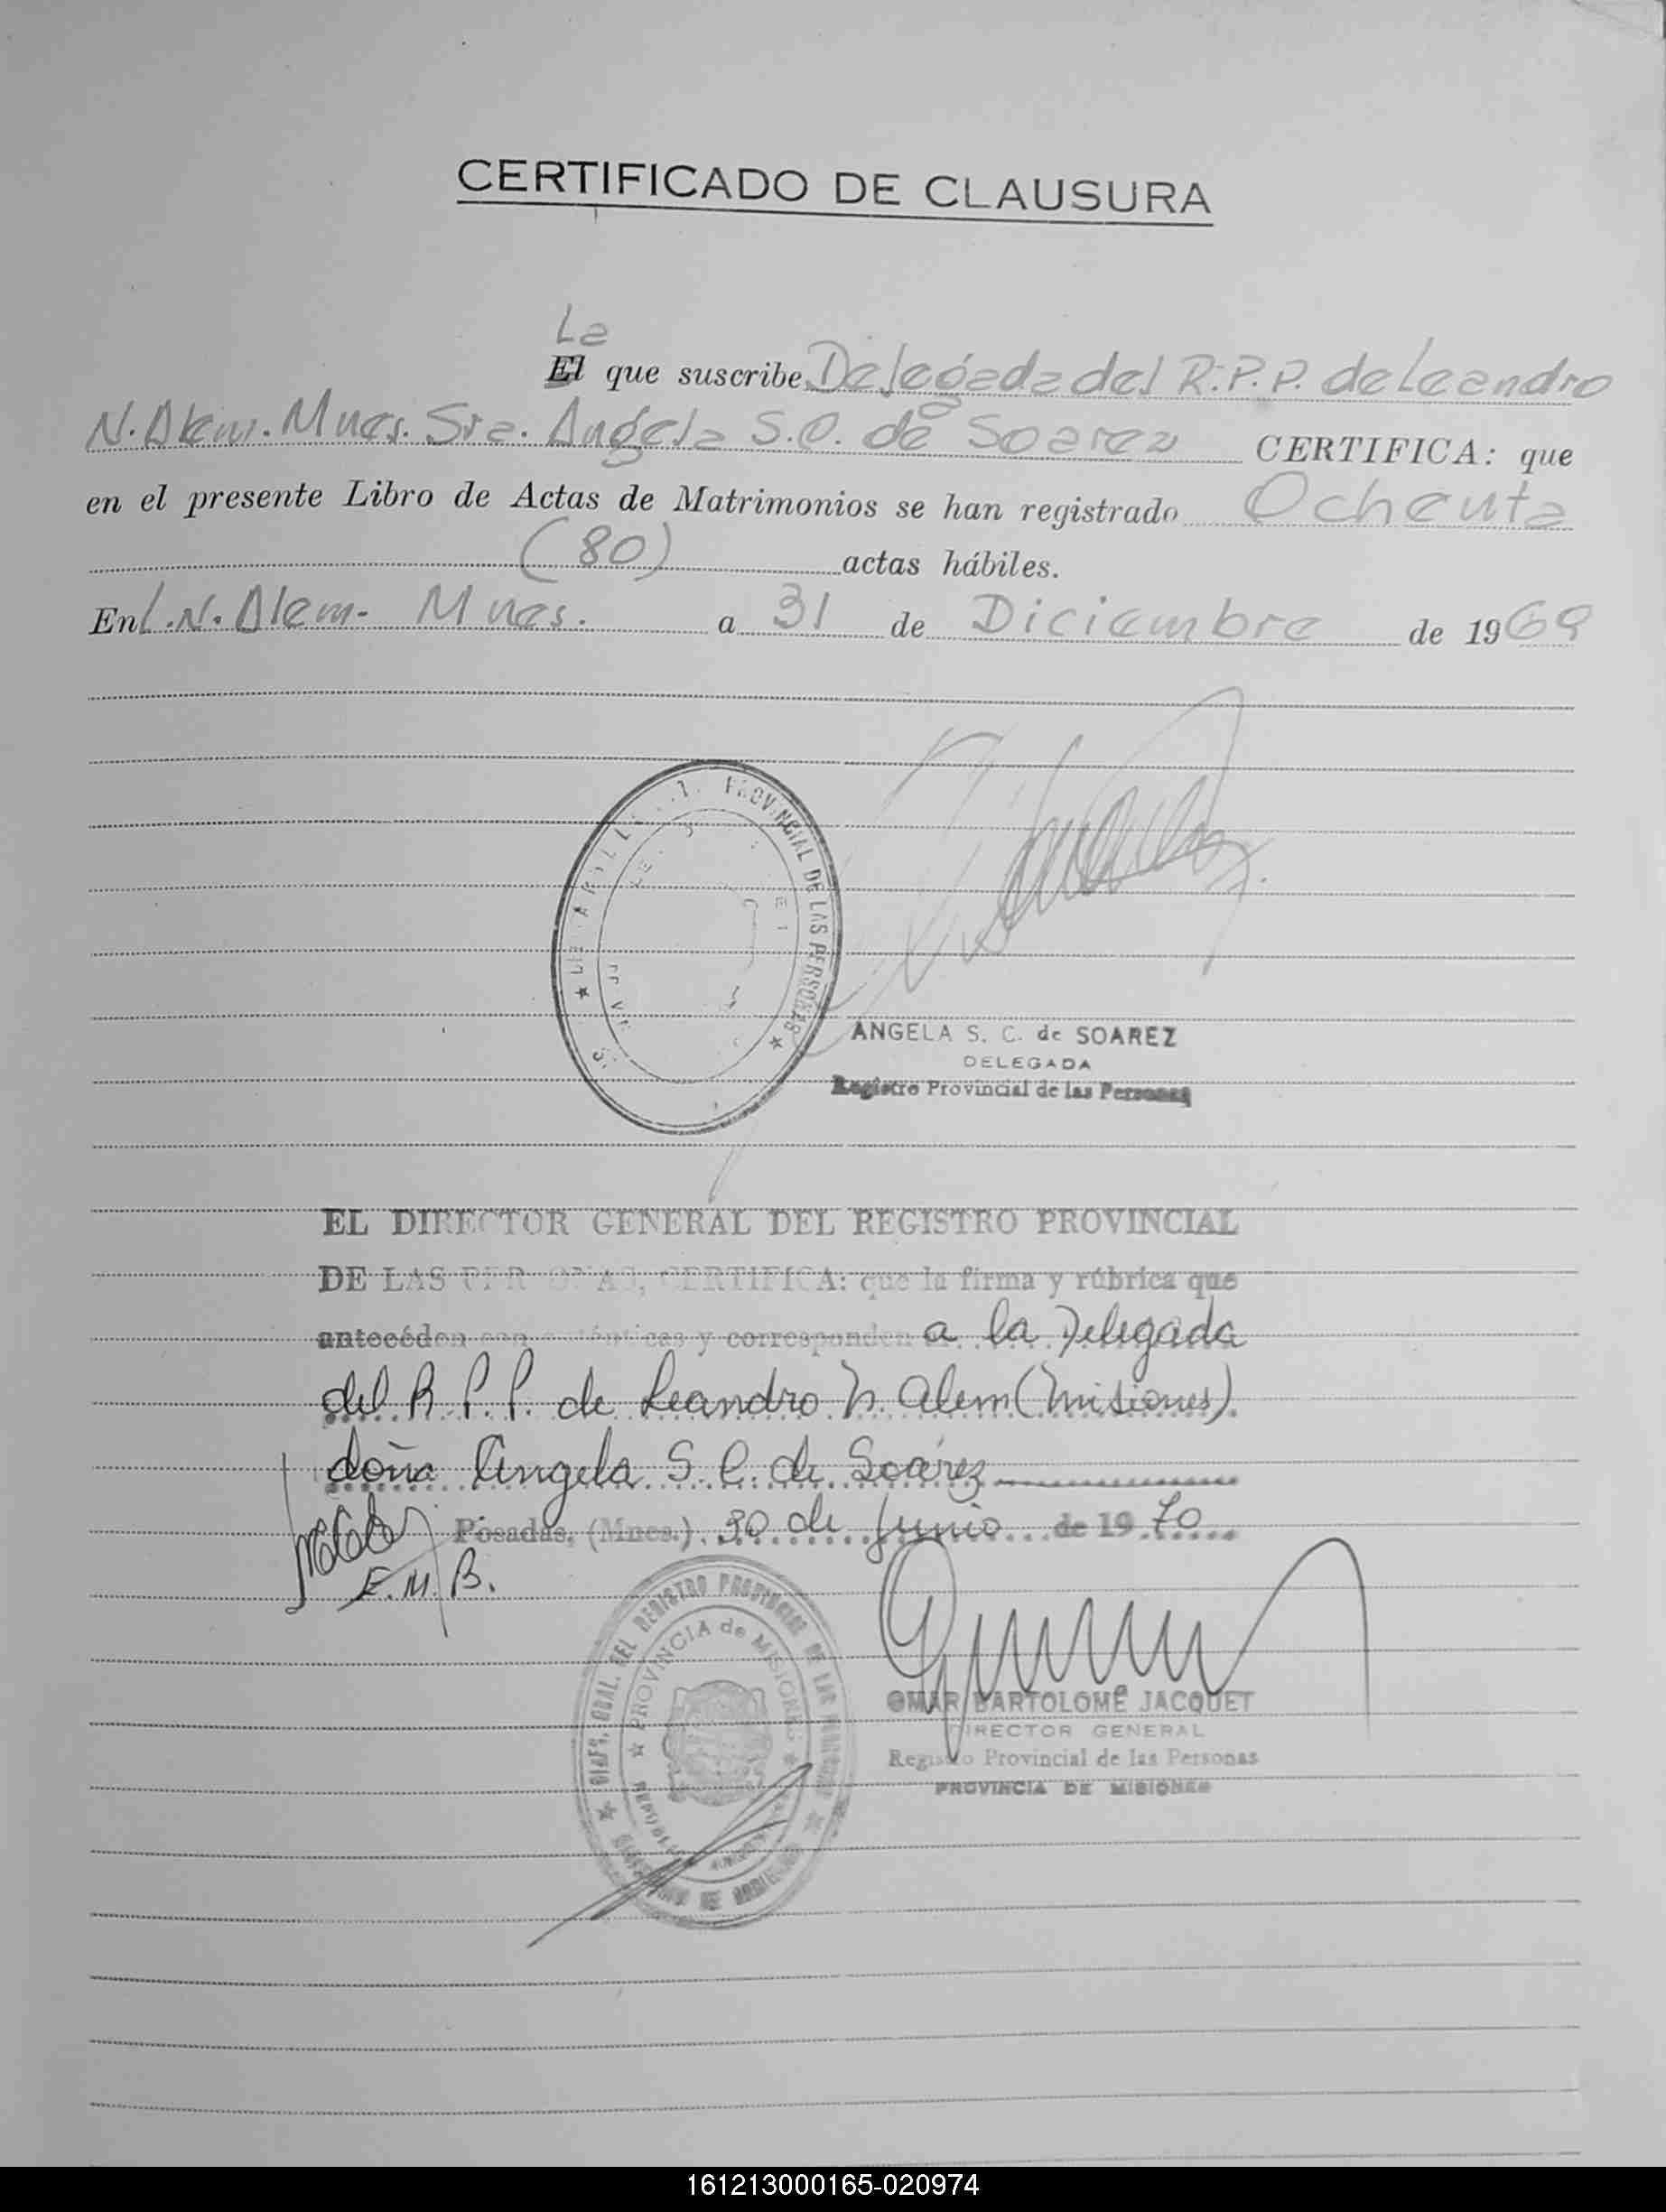 CERTIFICADO DE CLAUSURA
La
El que suscribe Delegada del R.P.P. de Leandro
N. Alem. Mnes. Sra. Angela S.C. de Soarez CERTIFICA: que
en el presente Libro de Actas de Matrimonios se han registrado Ochenta
(80) actas hábiles.
En L.N. Alem- Mnes. a 31 de Diciembre de 1969
PROVINCIAL DE LAS PERSONAS
ANGELA S. C. de SOAREZ
DELEGADA
Registro Provincial de las Personas
EL DIRECTOR GENERAL DEL REGISTRO PROVINCIAL
DE LAS PERSONAS, CERTIFICA: que la firma y rúbrica que
antecéden son auténticas y corresponden a la Delegada
del R.P.P. de Leandro N. Alem (Misiones)
doña Angela S. C. de Soárez
Posadas, (Mnes.) 30 de Junio de 1970
E.M.B.
DIREC. GRAL. DEL REGISTRO PROVINCIAL DE LAS PERSONAS
PROVINCIA de MISIONES
OMAR BARTOLOMÉ JACQUET
DIRECTOR GENERAL
Registro Provincial de las Personas
PROVINCIA DE MISIONES
161213000165-020974